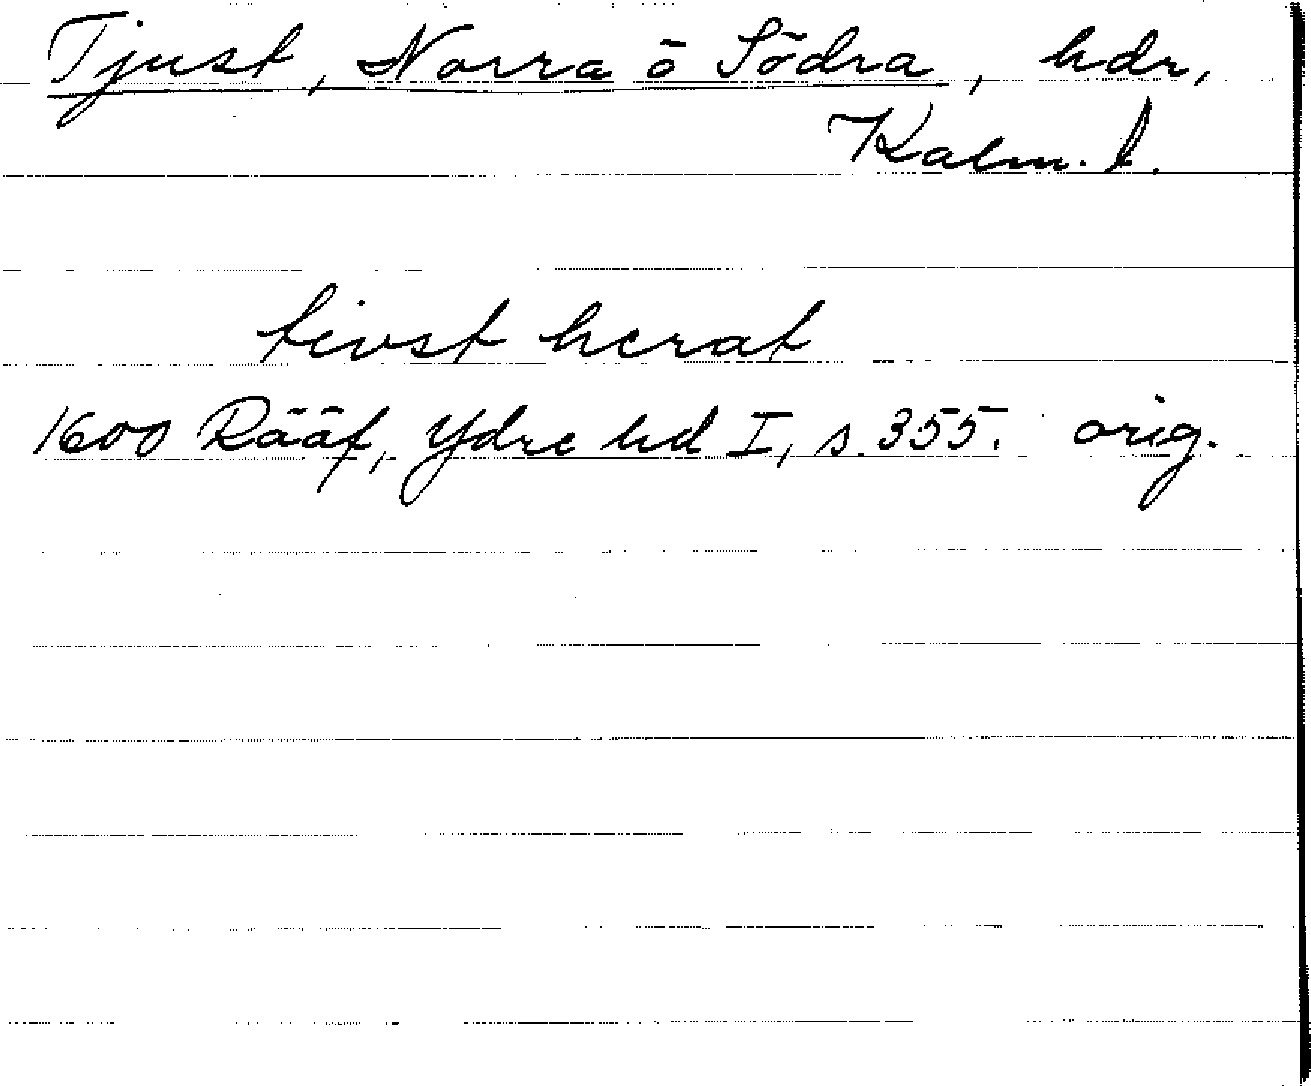 Tjust, Norra o Södra, hdr,
Kalm. l.
tivst herat
1600 Rääf, Ydre hd I, s. 355. orig.